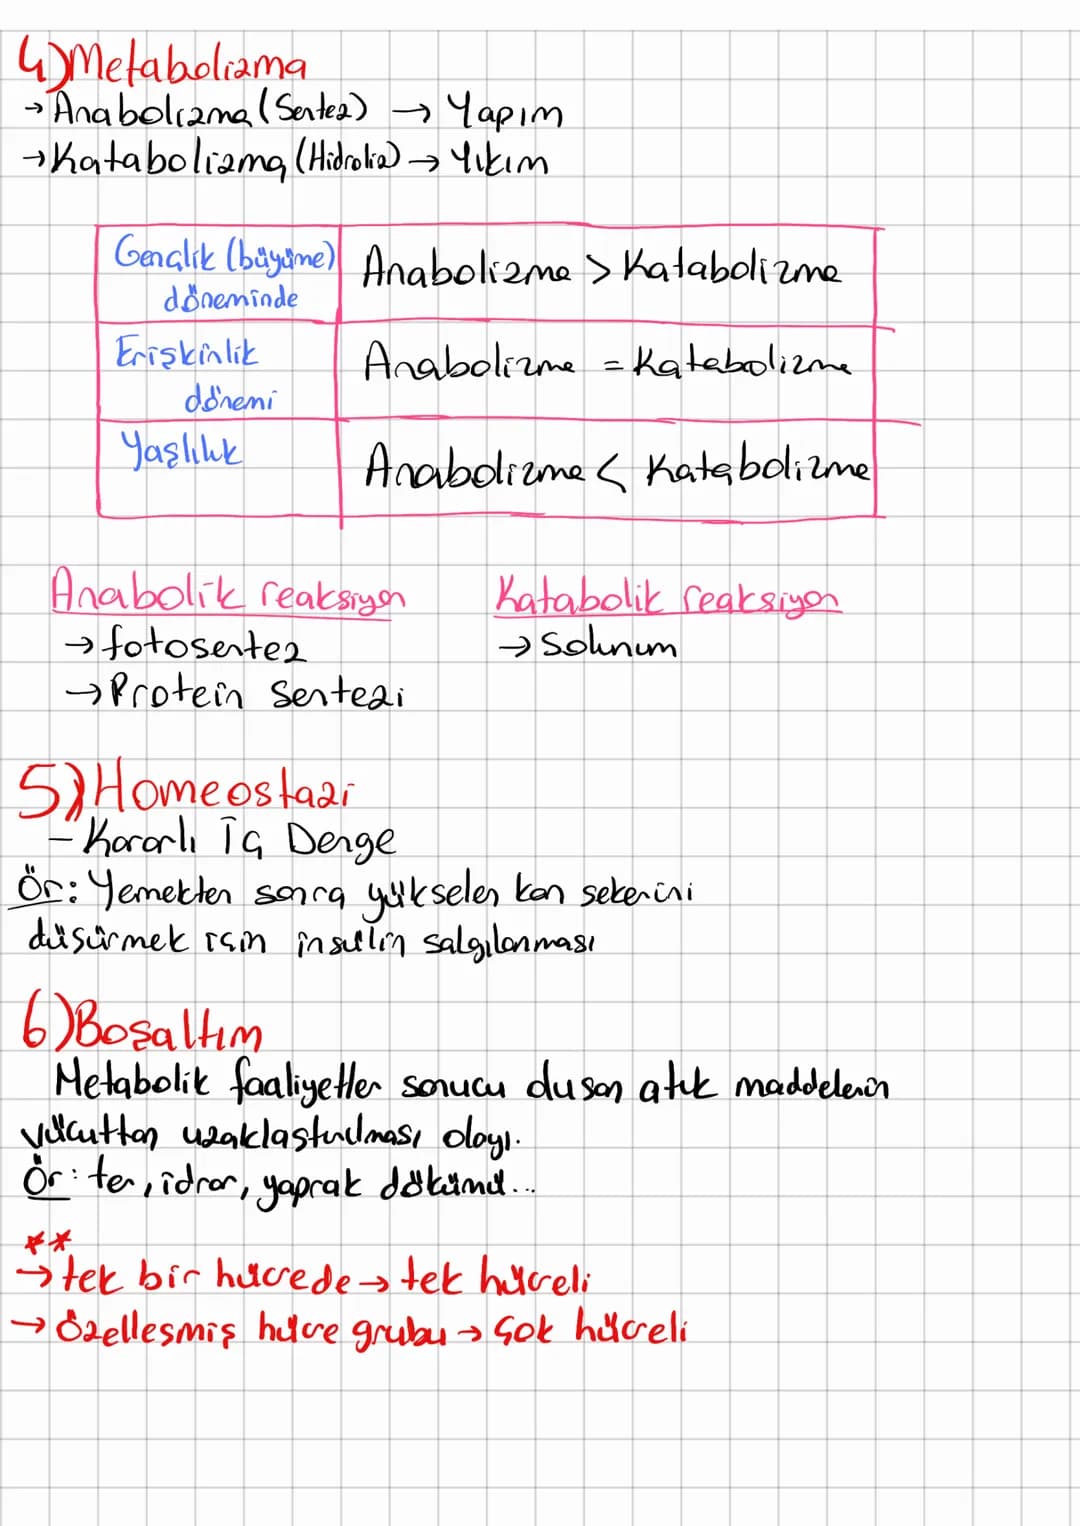 4) Metabolizma
→ Anabolizma (Sentez) → Yapım
→ Katabolizma (Hidroliz) → Yıkım
Gençlik (büyüme) döneminde
Anabolizma > Katabolizma
Erişkinlik dönemi
Anabolizma = Katabolizma
Yaşlılık
Anabolizma < Katabolizma
Anabolik reaksiyon
→ fotosentez
→ Protein Sentezi
Katabolik reaksiyon
→ Solunum
5) Homeostazi
- Kararlı İç Denge
Ör: Yemekten sonra yükselen kan sekerini
düsürmek için insülin salgılanması
6) Boşaltım
Metabolik faaliyetler sonucu dusan atık maddelerin
vücuttan uzaklastırılması olayı.
Ör: ter, idrar, yaprak dökümü...
**
→ tek bir hücrede → tek hücreli
→ özellesmiş hücre grubu → Çok hücreli